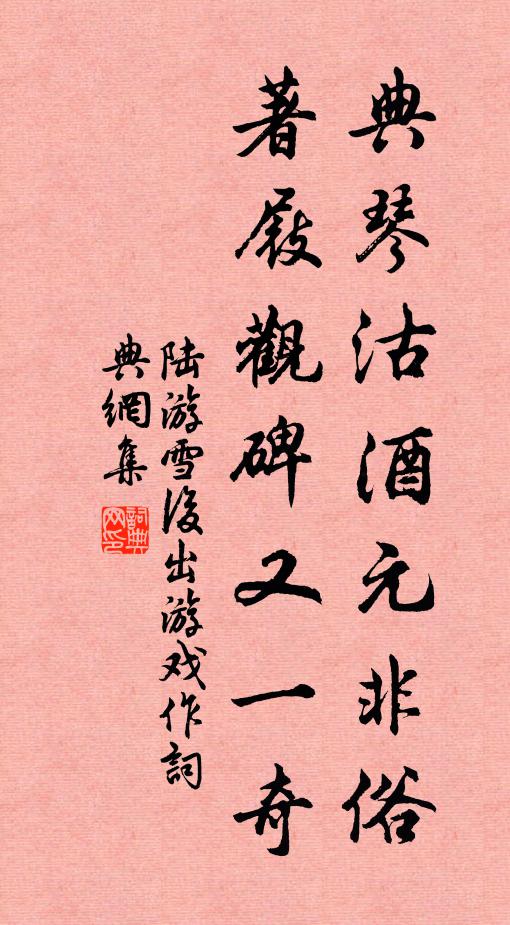 典琴沽酒元非俗
著屐觀碑又一奇
陆游雪後出游戏作詞
典網集
詞典網印